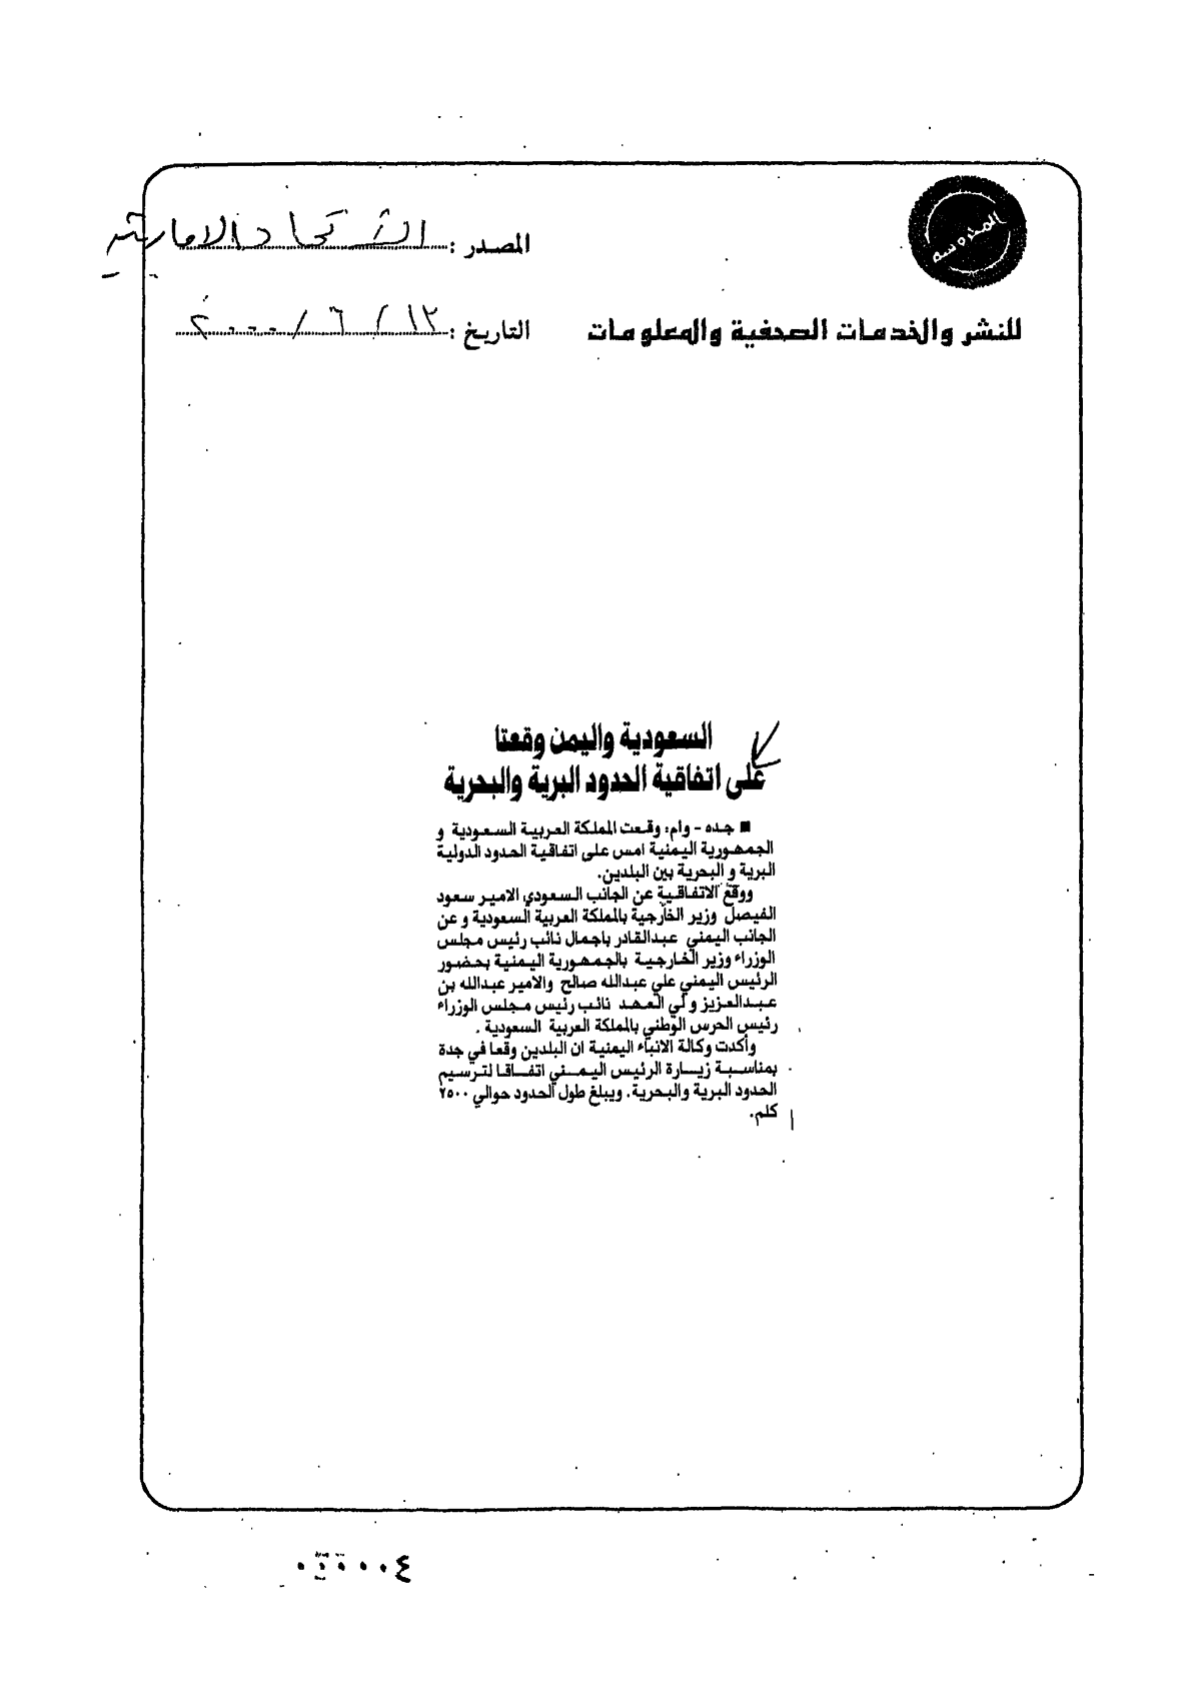 المحروسة
المصدر : الاتحاد الاماراتية
للنشر والخدمات الصحفية والمعلومات
التاريخ : ١٣ / ٦ / ٢٠٠٠
السعودية واليمن وقعتا
على اتفاقية الحدود البرية والبحرية
■ جده - وام: وقعت المملكة العربية السعودية و
الجمهورية اليمنية امس على اتفاقية الحدود الدولية
البرية و البحرية بين البلدين.
ووقع الاتفاقية عن الجانب السعودي الامير سعود
الفيصل وزير الخارجية بالمملكة العربية السعودية و عن
الجانب اليمني عبدالقادر باجمال نائب رئيس مجلس
الوزراء وزير الخارجية بالجمهورية اليمنية بحضور
الرئيس اليمني علي عبدالله صالح والامير عبدالله بن
عبدالعزيز ولي العهد نائب رئيس مجلس الوزراء
رئيس الحرس الوطني بالمملكة العربية السعودية .
وأكدت وكالة الانباء اليمنية ان البلدين وقعا في جدة
بمناسبة زيارة الرئيس اليمني اتفاقا لترسيم
الحدود البرية والبحرية. ويبلغ طول الحدود حوالي ٢٥٠٠
كلم.